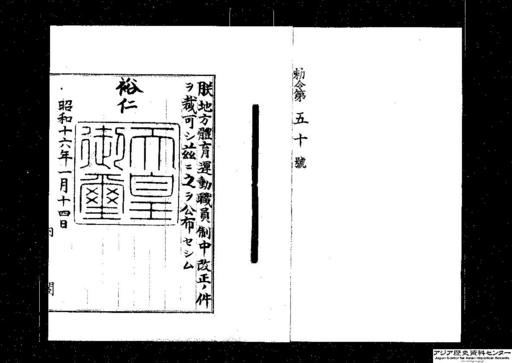 勅令第五十號
朕地方體育運動職員制中改正ノ件
ヲ裁可シ茲ニ之ヲ公布セシム
裕仁
天皇
御璽
昭和十六年一月十四日
内閣
アジア歴史資料センター
Japan Center for Asian Historical Records